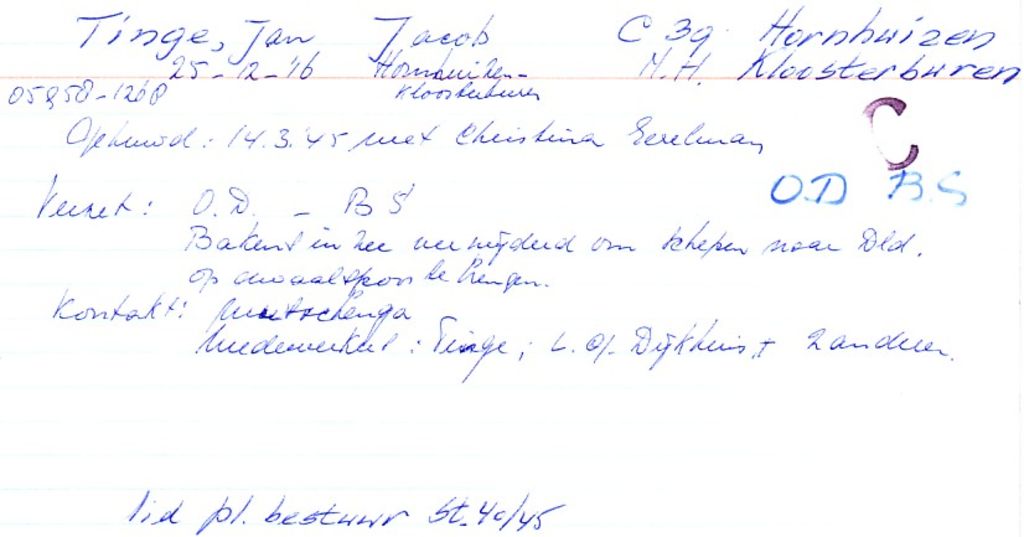 Tinge, Jan Jacob C 39 Hornhuizen
25-12-'16 Hornhuizen- N.H. Kloosterburen
Kloosterburen
Gehuwd: 14.3.'45 met Christina Eerelman
C
O.D B.S
Verzet: O.D. - BS
Bakens in zee verwijderd om schepen naar Dld.
op dwaalspoor te brengen.
Kontakt:
Medewerkers: Tinge, L. Dijkhuis, + 2 anderen.
lid pl. bestuur St. 40/45